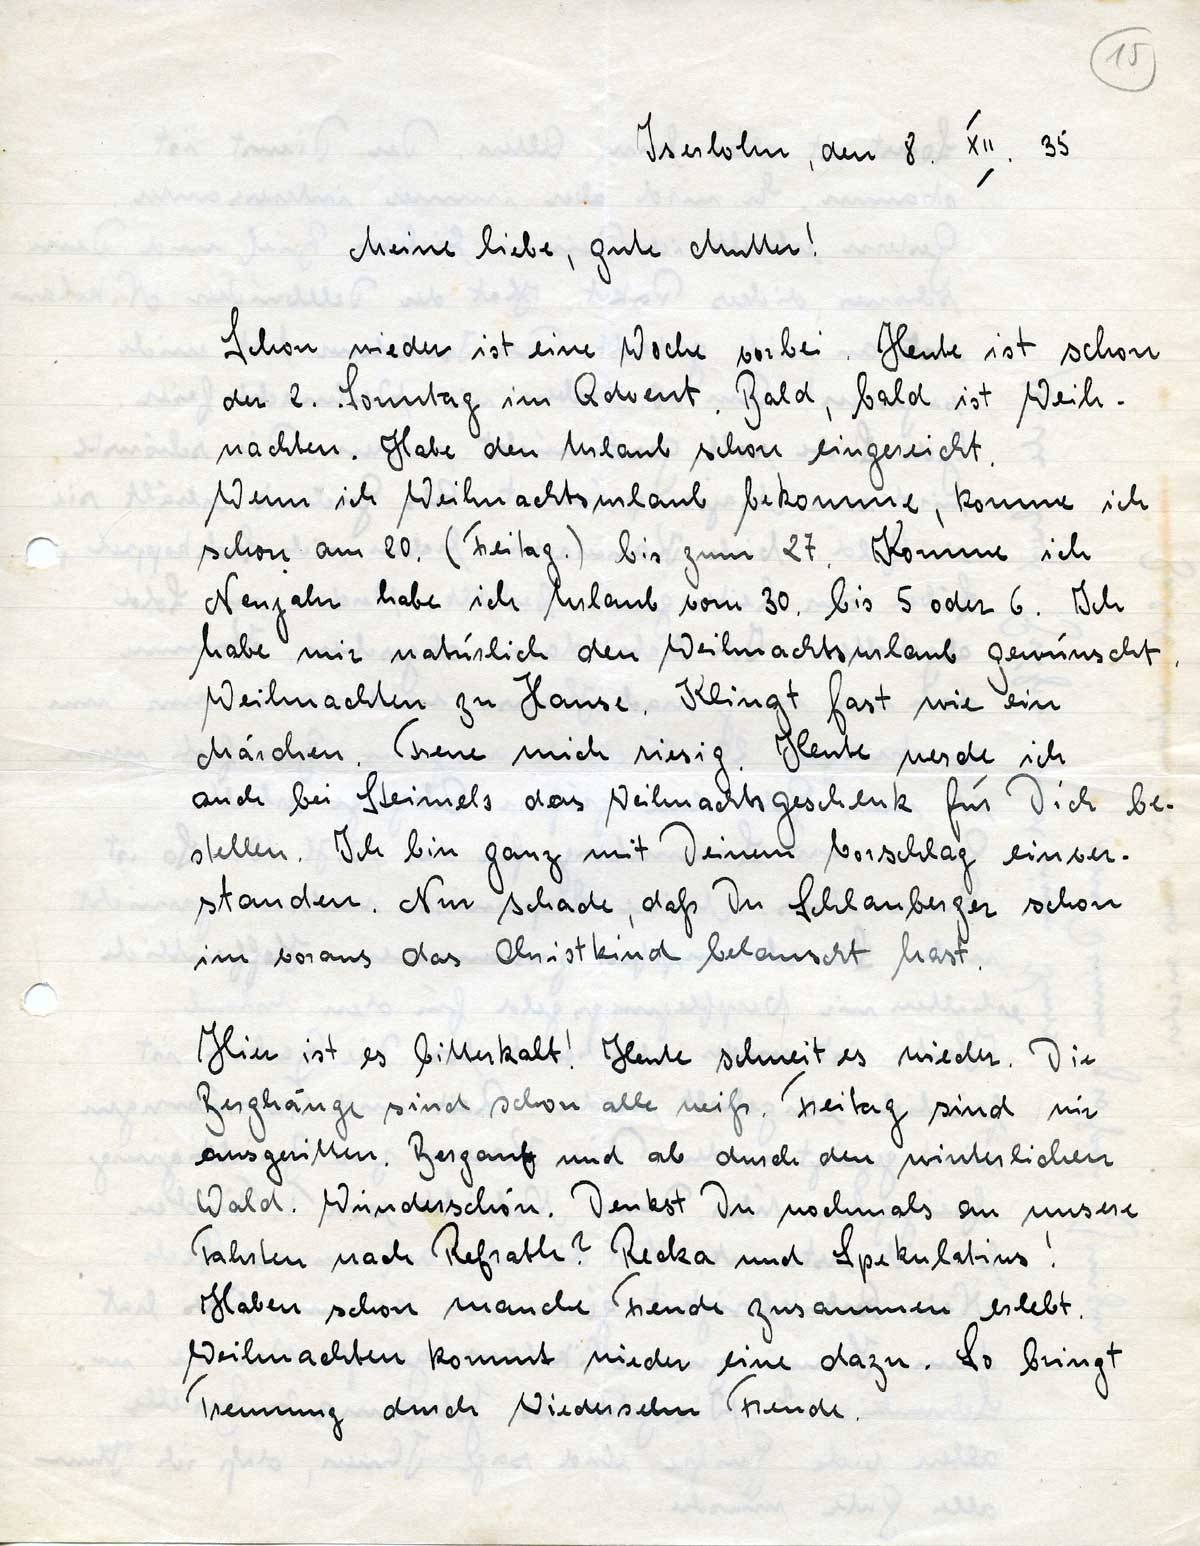 15
Iserlohn, den 8. XII. 35
Meine liebe, gute Mutter!
Schon wieder ist eine Woche vorbei. Heute ist schon
der 2. Sonntag im Advent. Bald, bald ist Weih-
nachten. Habe den Urlaub schon eingereicht.
Wenn ich Weihnachtsurlaub bekomme, komme ich
schon am 20. (Freitag.) bis zum 27. Komme ich
Neujahr habe ich Urlaub vom 30. bis 5 oder 6. Ich
habe mir natürlich den Weihnachtsurlaub gewünscht.
Weihnachten zu Hause. Klingt fast wie ein
Märchen. Freue mich riesig. Heute werde ich
auch bei Steimels das Weihnachtsgeschenk für Dich be-
stellen. Ich bin ganz mit Deinem Vorschlag einver-
standen. Nur schade, daß Du Schlauberger schon
im voraus das Christkind belauscht hast.
Hier ist es bitterkalt! Heute schneit es wieder. Die
Berghänge sind schon alle weiß. Freitag sind wir
ausgeritten. Bergauf und ab durch den winterlichen
Wald. Wunderschön. Denkst Du nochmals an unsere
Fahrten nach Refrath? Recka und Spekulatius!
Haben schon manche Freude zusammen erlebt.
Weihnachten kommt wieder eine dazu. So bringt
Trennung durch Wiedersehn Freude.